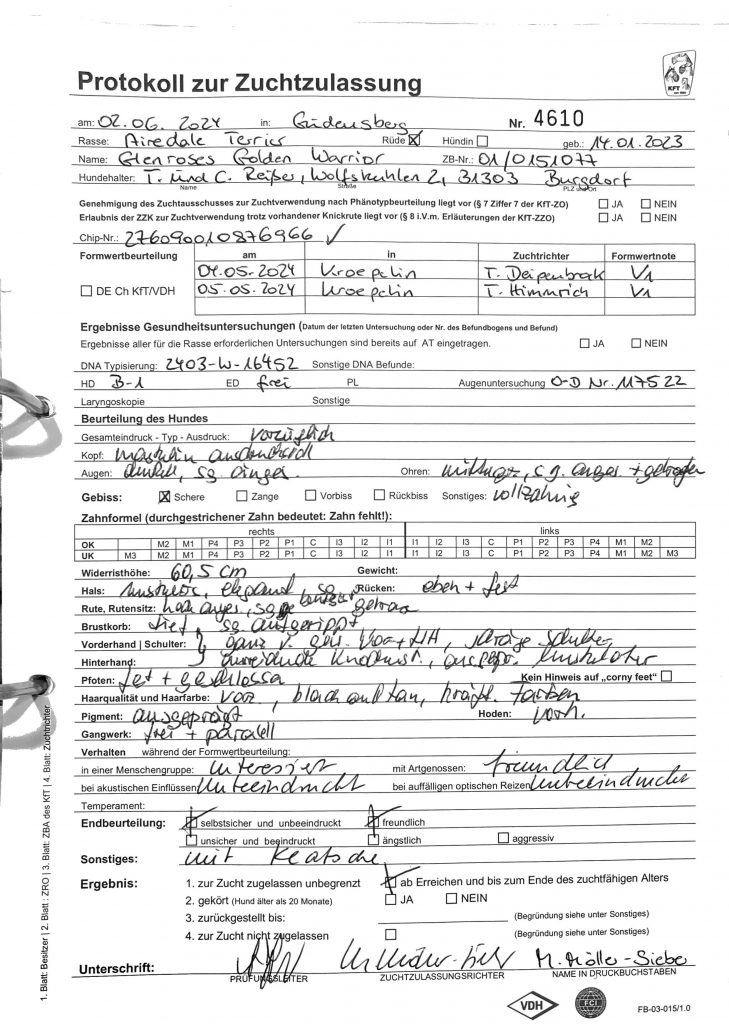 Protokoll zur Zuchtzulassung
KFT
am: 02.06.2024 in: Gudensberg Nr. 4610
Rasse: Airedale Terrier Rüde ☒ Hündin ☐ geb.: 14.01.2023
Name: Glenroses Golden Warrior ZB-Nr.: 01/0151077
Hundehalter: T. und C. Reißer, Wolfskuhlen 2, 31303 Burgdorf
Name Straße PLZ und Ort
Genehmigung des Zuchtausschusses zur Zuchtverwendung nach Phänotypbeurteilung liegt vor (§ 7 Ziffer 7 der KfT-ZO) ☐ JA ☐ NEIN
Erlaubnis der ZZK zur Zuchtverwendung trotz vorhandener Knickrute liegt vor (§ 8 i.V.m. Erläuterungen der KfT-ZZO) ☐ JA ☐ NEIN
Chip-Nr.: 276090010876966 ✓
Formwertbeurteilung am in Zuchtrichter Formwertnote
04.05.2024 Kroepelin T. Deipenbrock V1
☐ DE Ch KfT/VDH 05.05.2024 Kroepelin T. Himmrich V1
Ergebnisse Gesundheitsuntersuchungen (Datum der letzten Untersuchung oder Nr. des Befundbogens und Befund)
Ergebnisse aller für die Rasse erforderlichen Untersuchungen sind bereits auf AT eingetragen. ☐ JA ☐ NEIN
DNA Typisierung: 2403-W-16452 Sonstige DNA Befunde:
HD B-1 ED frei PL Augenuntersuchung O-D Nr. 117522
Laryngoskopie Sonstige
Beurteilung des Hundes
Gesamteindruck - Typ - Ausdruck: vorzüglich
Kopf: maskulin ausdrucksvoll
Augen: dunkel, sg. Ohren: sg. anges. + getragen
Gebiss: ☒ Schere ☐ Zange ☐ Vorbiss ☐ Rückbiss Sonstiges: vollzahnig
Zahnformel (durchgestrichener Zahn bedeutet: Zahn fehlt!):
rechts links
OK M2 M1 P4 P3 P2 P1 C I3 I2 I1 I1 I2 I3 C P1 P2 P3 P4 M1 M2
UK M3 M2 M1 P4 P3 P2 P1 C I3 I2 I1 I1 I2 I3 C P1 P2 P3 P4 M1 M2 M3
Widerristhöhe: 60,5 cm Gewicht:
Hals: elegant, sg Rücken: eben + fest
Rute, Rutensitz: hoch anges, getragen
Brustkorb: tief, sg. aufgerippt
Vorderhand | Schulter: ganz schräge Schulter
Hinterhand: ausreichende
Pfoten: fest + geschlossen Kein Hinweis auf „corny feet“ ☐
Haarqualität und Haarfarbe: vorz, black and tan, kräft. Farben
Pigment: ausgeprägt Hoden: vorh.
Gangwerk: frei + parallel
Verhalten während der Formwertbeurteilung:
in einer Menschengruppe: interessiert mit Artgenossen: freundlich
bei akustischen Einflüssen unbeeindruckt bei auffälligen optischen Reizen unbeeindruckt
Temperament:
Endbeurteilung: ☒ selbstsicher und unbeeindruckt ☒ freundlich
☐ unsicher und beeindruckt ☐ ängstlich ☐ aggressiv
Sonstiges: mit
Ergebnis: 1. zur Zucht zugelassen unbegrenzt ☒ ab Erreichen und bis zum Ende des zuchtfähigen Alters
2. gekört (Hund älter als 20 Monate) ☐ JA ☐ NEIN
3. zurückgestellt bis: (Begründung siehe unter Sonstiges)
4. zur Zucht nicht zugelassen ☐ (Begründung siehe unter Sonstiges)
Unterschrift: M. Möller-Sieber
PRÜFUNGSLEITER ZUCHTZULASSUNGSRICHTER NAME IN DRUCKBUCHSTABEN
VDH FCI FB-03-015/1.0
1. Blatt: Besitzer | 2. Blatt : ZRO | 3. Blatt: ZBA des KfT | 4. Blatt: Zuchtrichter